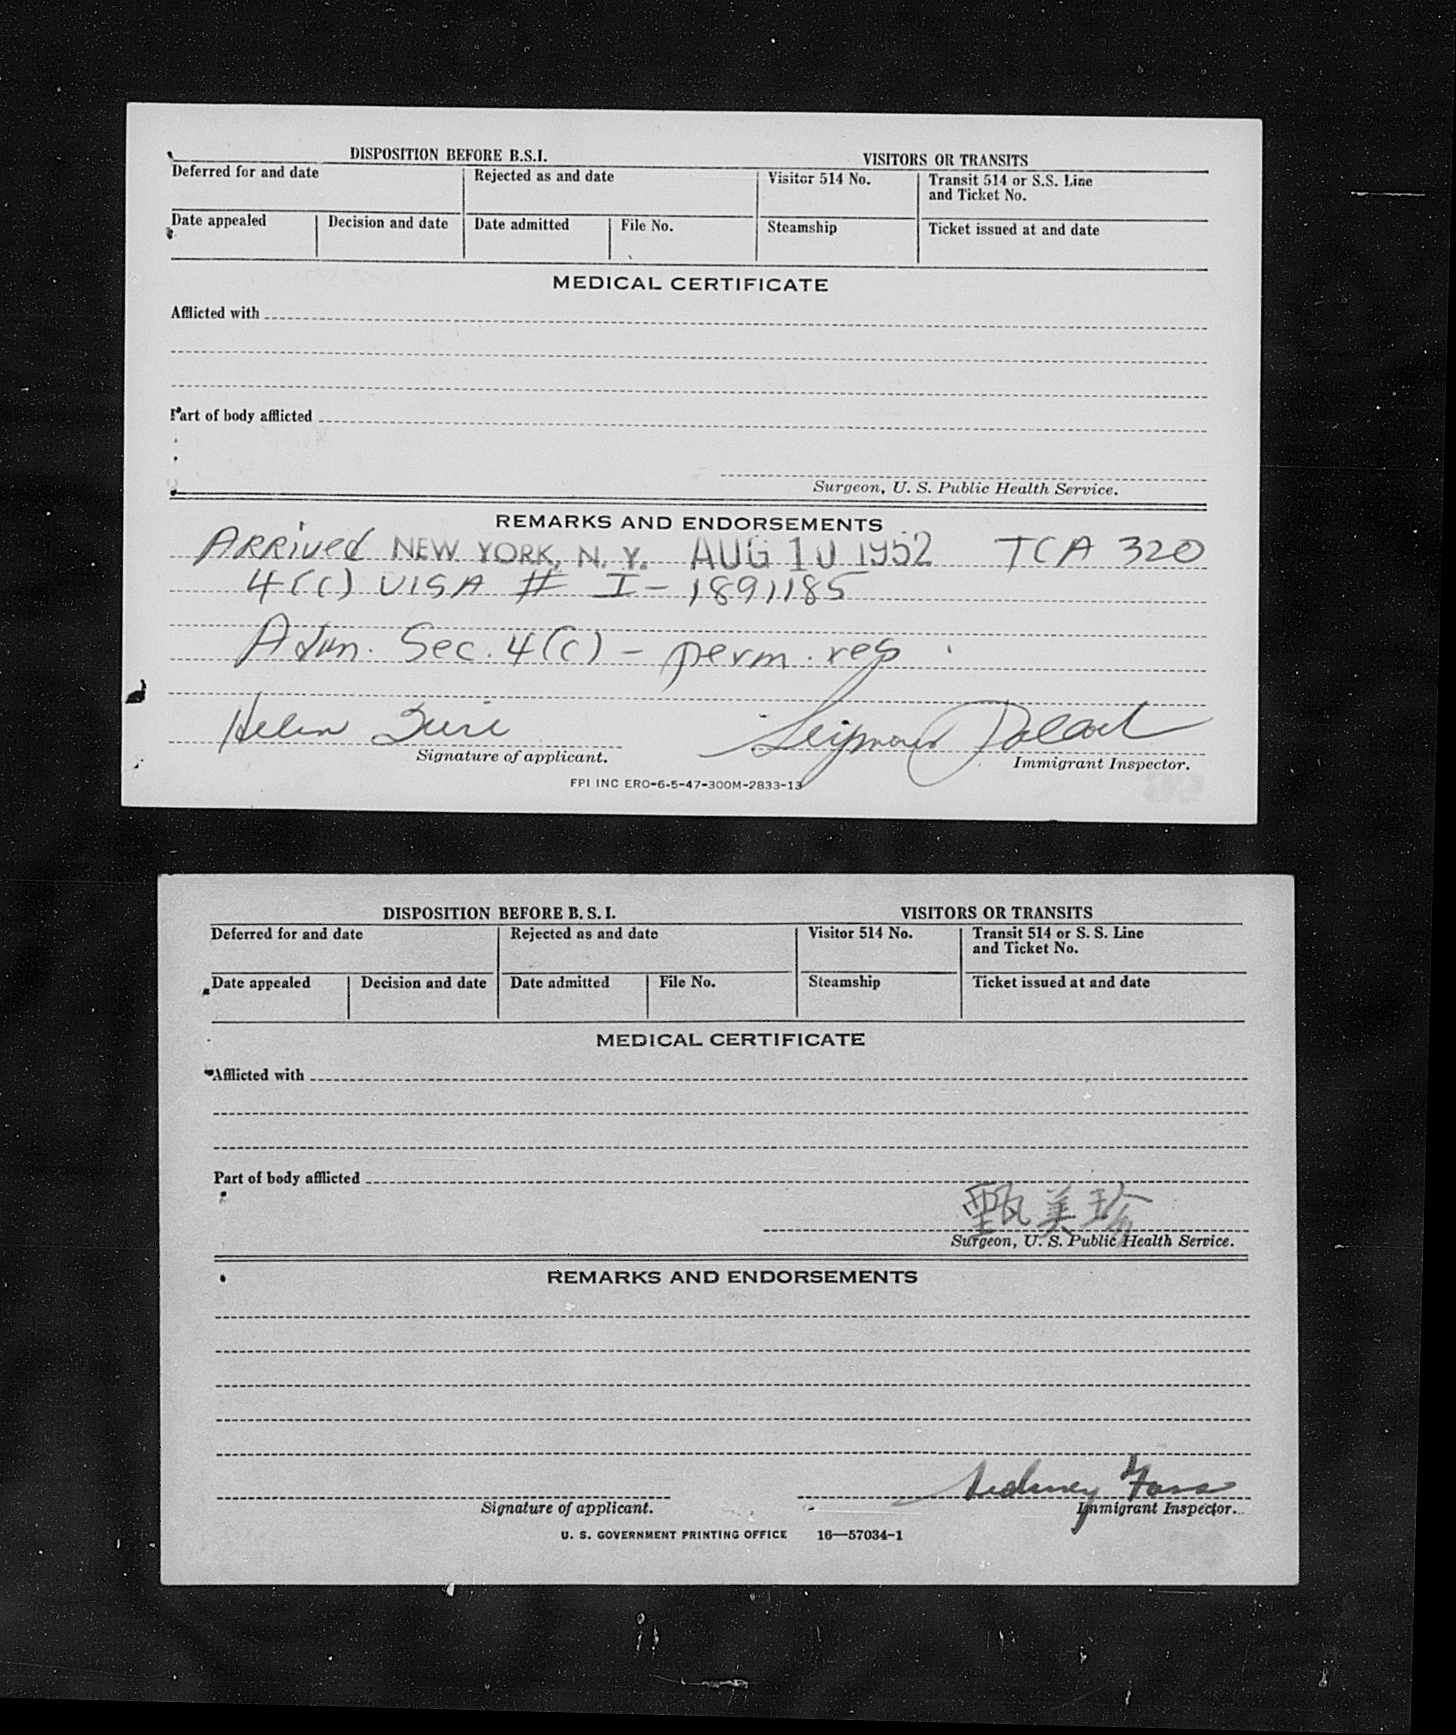 DISPOSITION BEFORE B.S.I.
VISITORS OR TRANSITS
Deferred for and date
Rejected as and date
Visitor 514 No.
Transit 514 or S.S. Line
and Ticket No.
Date appealed
Decision and date
Date admitted
File No.
Steamship
Ticket issued at and date
MEDICAL CERTIFICATE
Afflicted with
Part of body afflicted
Surgeon, U. S. Public Health Service.
REMARKS AND ENDORSEMENTS
ARRived NEW YORK, N. Y. AUG 10 1952 TCA 320
4(c) VISA # I-1891185
Adm. Sec. 4(c) - perm. res.
Helen
Seymour
Signature of applicant.
Immigrant Inspector.
FPI INC ERO-6-5-47-300M-2833-13
DISPOSITION BEFORE B. S. I.
VISITORS OR TRANSITS
Deferred for and date
Rejected as and date
Visitor 514 No.
Transit 514 or S. S. Line
and Ticket No.
Date appealed
Decision and date
Date admitted
File No.
Steamship
Ticket issued at and date
MEDICAL CERTIFICATE
Afflicted with
Part of body afflicted
甄美珍
Surgeon, U. S. Public Health Service.
REMARKS AND ENDORSEMENTS
Sidney Fass
Signature of applicant.
Immigrant Inspector.
U. S. GOVERNMENT PRINTING OFFICE 16—57034-1